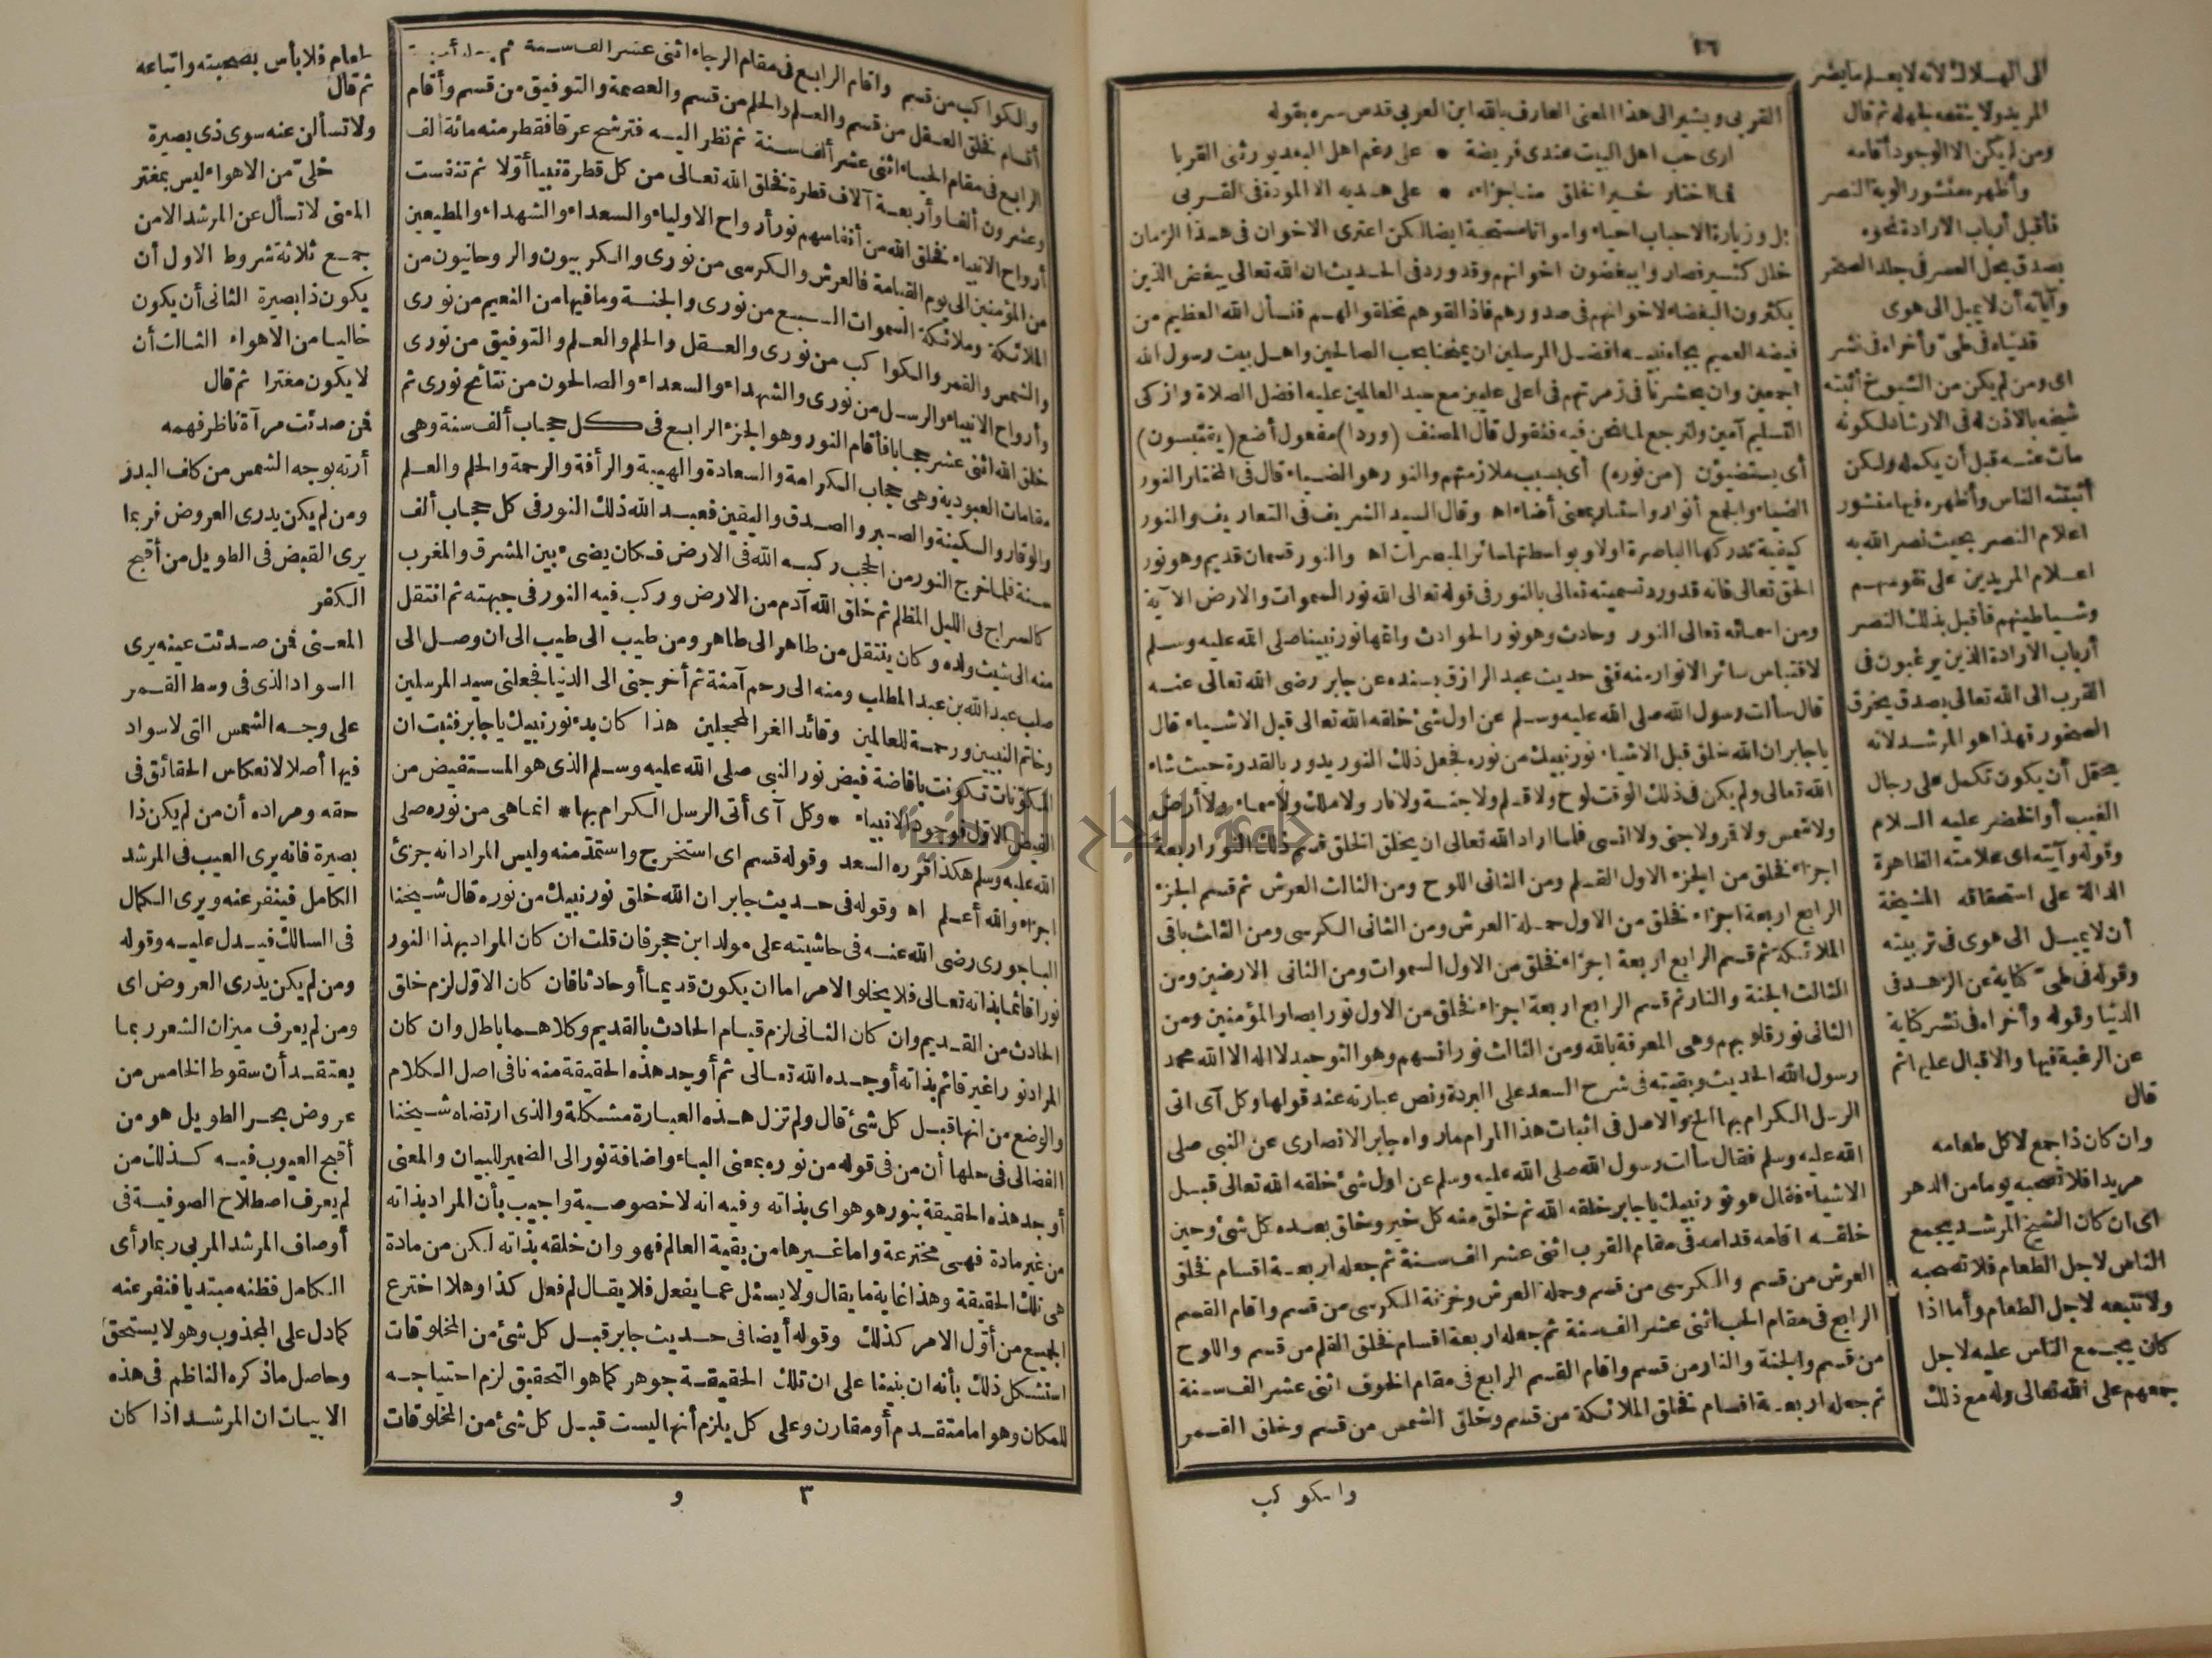 ١٦
القربى ويشير الى هذا المعنى العارف بالله ابن العربى قدس سره بقوله
ارى حب اهل البيت عندى فريضة * على رغم اهل البعد يورثنى القربا
فما اختار خير الخلق منا جزاءه * على هديه الا المودة فى القربى
بل وزيارة الاحباب احياء وامواتا مستحبة ايضا لكن اعترى الاخوان فى هذا الزمان
خلل كثير فصاروا يبغضون اخوانهم وقد ورد فى الحديث ان الله تعالى يبغض الذين
يكثرون البغضاء لاخوانهم فى صدورهم فاذا لقوهم تخلقوا لهم فنسأل الله العظيم من
فيضه العميم بجاه نبيه افضل المرسلين ان يمنحنا بحب الصالحين واهل بيت رسول الله
اجمعين وان يحشرنا فى زمرتهم فى اعلى عليين مع سيد العالمين عليه افضل الصلاة وازكى
التسليم آمين ولنرجع لما نحن فيه فنقول قال المصنف (وردا) مفعول أضع (يقتبسون)
أى يستضيؤن (من نوره) أى بسبب ملازمتهم والنور هو الضياء قال فى المختار النور
الضياء والجمع أنوار واستنار بمعنى أضاء اه وقال السيد الشريف فى التعاريف والنور
كيفية تدركها الباصرة اولا وبواسطتها سائر المبصرات اه والنور قسمان قديم وهو نور
الحق تعالى فانه قد ورد تسميته تعالى بالنور فى قوله تعالى الله نور السموات والارض الآية
ومن اسمائه تعالى النور وحادث وهو نور الحوادث واتمها نور نبينا صلى الله عليه وسلم
لاقتباس سائر الانوار منه ففى حديث عبد الرازق بسنده عن جابر رضى الله تعالى عنه
قال سألت رسول الله صلى الله عليه وسلم عن اول شئ خلقه الله تعالى قبل الاشياء قال
يا جابر ان الله خلق قبل الاشياء نور نبيك من نوره فجعل ذلك النور يدور بالقدرة حيث شاء
الله تعالى ولم يكن فى ذلك الوقت لوح ولا قلم ولا جنة ولا نار ولا ملك ولا سماء ولا أرض
ولا شمس ولا قمر ولا جنى ولا انسى فلما اراد الله تعالى ان يخلق الخلق قسم ذلك النور اربعة
اجزاء فخلق من الجزء الاول القلم ومن الثانى اللوح ومن الثالث العرش ثم قسم الجزء
الرابع اربعة اجزاء فخلق من الاول حملة العرش ومن الثانى الكرسى ومن الثالث باقى
الملائكة ثم قسم الرابع اربعة اجزاء فخلق من الاول السموات ومن الثانى الارضين ومن
الثالث الجنة والنار ثم قسم الرابع اربعة اجزاء فخلق من الاول نور ابصار المؤمنين ومن
الثانى نور قلوبهم وهى المعرفة بالله ومن الثالث نور انسهم وهو التوحيد لا اله الا الله محمد
رسول الله الحديث وبقيته فى شرح السعد على البردة ونص عبارته عند قولها وكل آى اتى
الرسل الكرام بها الخ والاصل فى اثبات هذا المرام ما رواه جابر الانصارى عن النبى صلى
الله عليه وسلم فقال سألت رسول الله صلى الله عليه وسلم عن اول شئ خلقه الله تعالى قبل
الاشياء فقال هو نور نبيك يا جابر خلقه الله ثم خلق منه كل خير وخلق بعده كل شئ وحين
خلقه اقامه قدامه فى مقام القرب اثنى عشر الف سنة ثم جعله اربعة اقسام فخلق
العرش من قسم والكرسى من قسم وحملة العرش وخزنة الكرسى من قسم واقام القسم
الرابع فى مقام الحب اثنى عشر الف سنة ثم جعله اربعة اقسام فخلق القلم من قسم واللوح
من قسم والجنة والنار من قسم واقام القسم الرابع فى مقام الخوف اثنى عشر الف سنة
ثم جعله اربعة اقسام فخلق الملائكة من قسم وخلق الشمس من قسم وخلق القمر
والكواكب
الى الهلاك لانه لا يعلم ما يضر
المريد ولا ينفعه لجهله ثم قال
ومن لم يكن الا الوجود أقامه
وأظهر منشور الوية النصر
فأقبل أرباب الارادة نحوه
بصدق يحل العسر فى جلد الصخر
وآياته أن لا يميل الى هوى
فدنياه فى طى وأخراه فى نشر
اى ومن لم يكن من الشيوخ أثبته
شيخه بالاذن له فى الارشاد لكونه
مات عنه قبل أن يكمله ولكن
أثبتته الناس وأظهره فيها منشور
اعلام النصر بحيث نصر الله به
اعلام المريدين على نفوسهم
وشياطينهم فأقبل بذلك النصر
أرباب الارادة الذين يرغبون فى
القرب الى الله تعالى بصدق يخرق
الصخور فهذا هو المرشد لانه
يحتمل أن يكون تكمل على رجال
الغيب أو الخضر عليه السلام
وقوله وآيته اى علامته الظاهرة
الدالة على استحقاقه المشيخة
أن لا يميل الى هوى فى تربيته
وقوله فى طى كناية عن الزهد فى
الدنيا وقوله وأخراه فى نشر كناية
عن الرغبة فيها والاقبال عليها ثم
قال
وان كان ذا جمع لاكل طعامه
مريدا فلا تصحبه يوما من الدهر
اى ان كان الشيخ المرشد يجمع
الناس لاجل الطعام فلا تصحبه
ولا تتبعه لاجل الطعام وأما اذا
كان يجمع الناس عليه لاجل
جمعهم على الله تعالى وله مع ذلك
والكواكب من قسم واقام الرابع فى مقام الرجاء اثنى عشر الف سنة ثم
أقسام فخلق العقل من قسم والعلم والحلم من قسم والعصمة والتوفيق من قسم وأقام
الرابع فى مقام الحياء اثنى عشر ألف سنة ثم نظر اليه فترشح عرقا فقطر منه مائة ألف
وعشرون ألفا وأربعة آلاف قطرة فخلق الله تعالى من كل قطرة نبيا أولا ثم تنفست
أرواح الانبياء فخلق الله من أنفاسهم نور أرواح الاولياء والسعداء والشهداء والمطيعين
من المؤمنين الى يوم القيامة فالعرش والكرسى من نورى والكربيون والروحانيون من
الملائكة وملائكة السموات السبع من نورى والجنة وما فيها من النعيم من نورى
والشمس والقمر والكواكب من نورى والعقل والحلم والعلم والتوفيق من نورى
وأرواح الانبياء والرسل من نورى والشهداء والسعداء والصالحون من نتائج نورى ثم
خلق الله اثنى عشر حجابا فأقام النور وهو الجزء الرابع فى كل حجاب ألف سنة وهى
مقامات العبودية وهى حجاب الكرامة والسعادة والهيبة والرأفة والرحمة والحلم والعلم
والوقار والسكينة والصبر والصدق واليقين فعبد الله ذلك النور فى كل حجاب ألف
سنة فلما خرج النور من الحجب ركبه الله فى الارض فكان يضىء بين المشرق والمغرب
كالسراج فى الليل المظلم ثم خلق الله آدم من الارض وركب فيه النور فى جبهته ثم انتقل
منه الى شيث ولده وكان ينتقل من طاهر الى طاهر ومن طيب الى طيب الى ان وصل الى
صلب عبد الله بن عبد المطلب ومنه الى رحم آمنة ثم أخرجنى الى الدنيا فجعلنى سيد المرسلين
وخاتم النبيين ورحمة للعالمين وقائد الغر المحجلين هذا كان بدء نور نبيك يا جابر فثبت ان
المكونات تكونت بافاضة فيض نور النبى صلى الله عليه وسلم الذى هو المستفيض من
الفيض الاول فوجود الانبياء * وكل آى أتى الرسل الكرام بها * انما هى من نوره صلى
الله عليه وسلم هكذا قرره السعد وقوله قسم اى استخرج واستمد منه وليس المراد انه جزئ
اجزاء والله أعلم اه وقوله فى حديث جابر ان الله خلق نور نبيك من نوره قال شيخنا
الباجورى رضى الله عنه فى حاشيته على مولد ابن حجر فان قلت ان كان المراد بهذا النور
نورا قائما بذاته تعالى فلا يخلو الامر اما ان يكون قديما أو حادثا فان كان الاول لزم خلق
الحادث من القديم وان كان الثانى لزم قيام الحادث بالقديم وكلاهما باطل وان كان
المراد نورا غير قائم بذاته أوجده الله تعالى ثم أوجد هذه الحقيقة منه نافى اصل الكلام
والوضع من انها قبل كل شئ قال ولم تزل هذه العبارة مشكلة والذى ارتضاه شيخنا
الفضالى فى حلها أن من فى قوله من نوره بمعنى الباء واضافة نور الى الضمير للبيان والمعنى
أوجد هذه الحقيقة بنور هو هو اى بذاته وفيه انه لا خصوصية واجيب بأن المراد بذاته
من غير مادة فهى مخترعة واما غيرها من بقية العالم فهو وان خلقه بذاته لكن من مادة
هى تلك الحقيقة وهذا غاية ما يقال ولا يسئل عما يفعل فلا يقال لم فعل كذا وهلا اخترع
الجميع من أول الامر كذلك وقوله أيضا فى حديث جابر قبل كل شئ من المخلوقات
استشكل ذلك بأنه ان بنينا على ان تلك الحقيقة جوهر كما هو التحقيق لزم احتياجه
للمكان وهو اما متقدم أو مقارن وعلى كل يلزم أنها ليست قبل كل شئ من المخلوقات
٣ و
طعام فلا بأس بصحبته واتباعه
ثم قال
ولا تسألن عنه سوى ذى بصيرة
خلى من الاهواء ليس بمغتر
المعنى لا تسأل عن المرشد الا من
جمع ثلاثة شروط الاول أن
يكون ذا بصيرة الثانى أن يكون
خاليا من الاهواء الثالث أن
لا يكون مغترا ثم قال
فمن صدئت مرآة ناظر فهمه
أرته بوجه الشمس من كلف البدر
ومن لم يكن يدرى العروض فربما
يرى القبض فى الطويل من أقبح
الكفر
المعنى فمن صدئت عينه يرى
السواد الذى فى وسط القمر
على وجه الشمس التى لا سواد
فيها أصلا لانعكاس الحقائق فى
حقه ومراده أن من لم يكن ذا
بصيرة فانه يرى العيب فى المرشد
الكامل فينفر عنه ويرى الكمال
فى السالك فيدل عليه وقوله
ومن لم يكن يدرى العروض اى
ومن لم يعرف ميزان الشعر ربما
يعتقد أن سقوط الخامس من
عروض بحر الطويل هو من
أقبح العيوب فيه كذلك من
لم يعرف اصطلاح الصوفية فى
أوصاف المرشد المربى ربما رأى
الكامل فظنه مبتديا فنفر عنه
كما دل على المجذوب وهو لا يستحق
وحاصل ما ذكره الناظم فى هذه
الابيات ان المرشد اذا كان
جامعة النجاح الوطنية